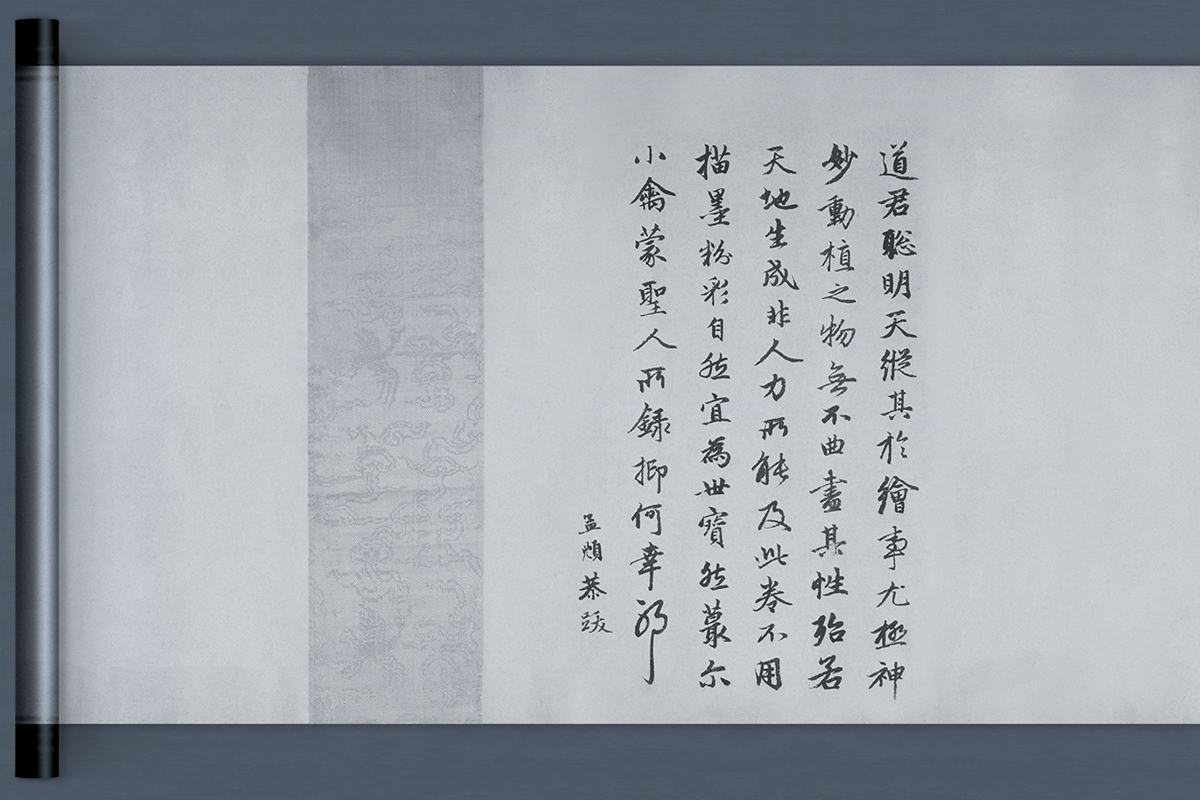 道君聪明天縱其於繪事尤極神
妙動植之物無不曲盡其性殆若
天地生成非人力所能及此卷不用
描墨粉彩自然宜為世寶然蕞尔
小禽蒙聖人所録抑何幸耶
孟頫恭跋